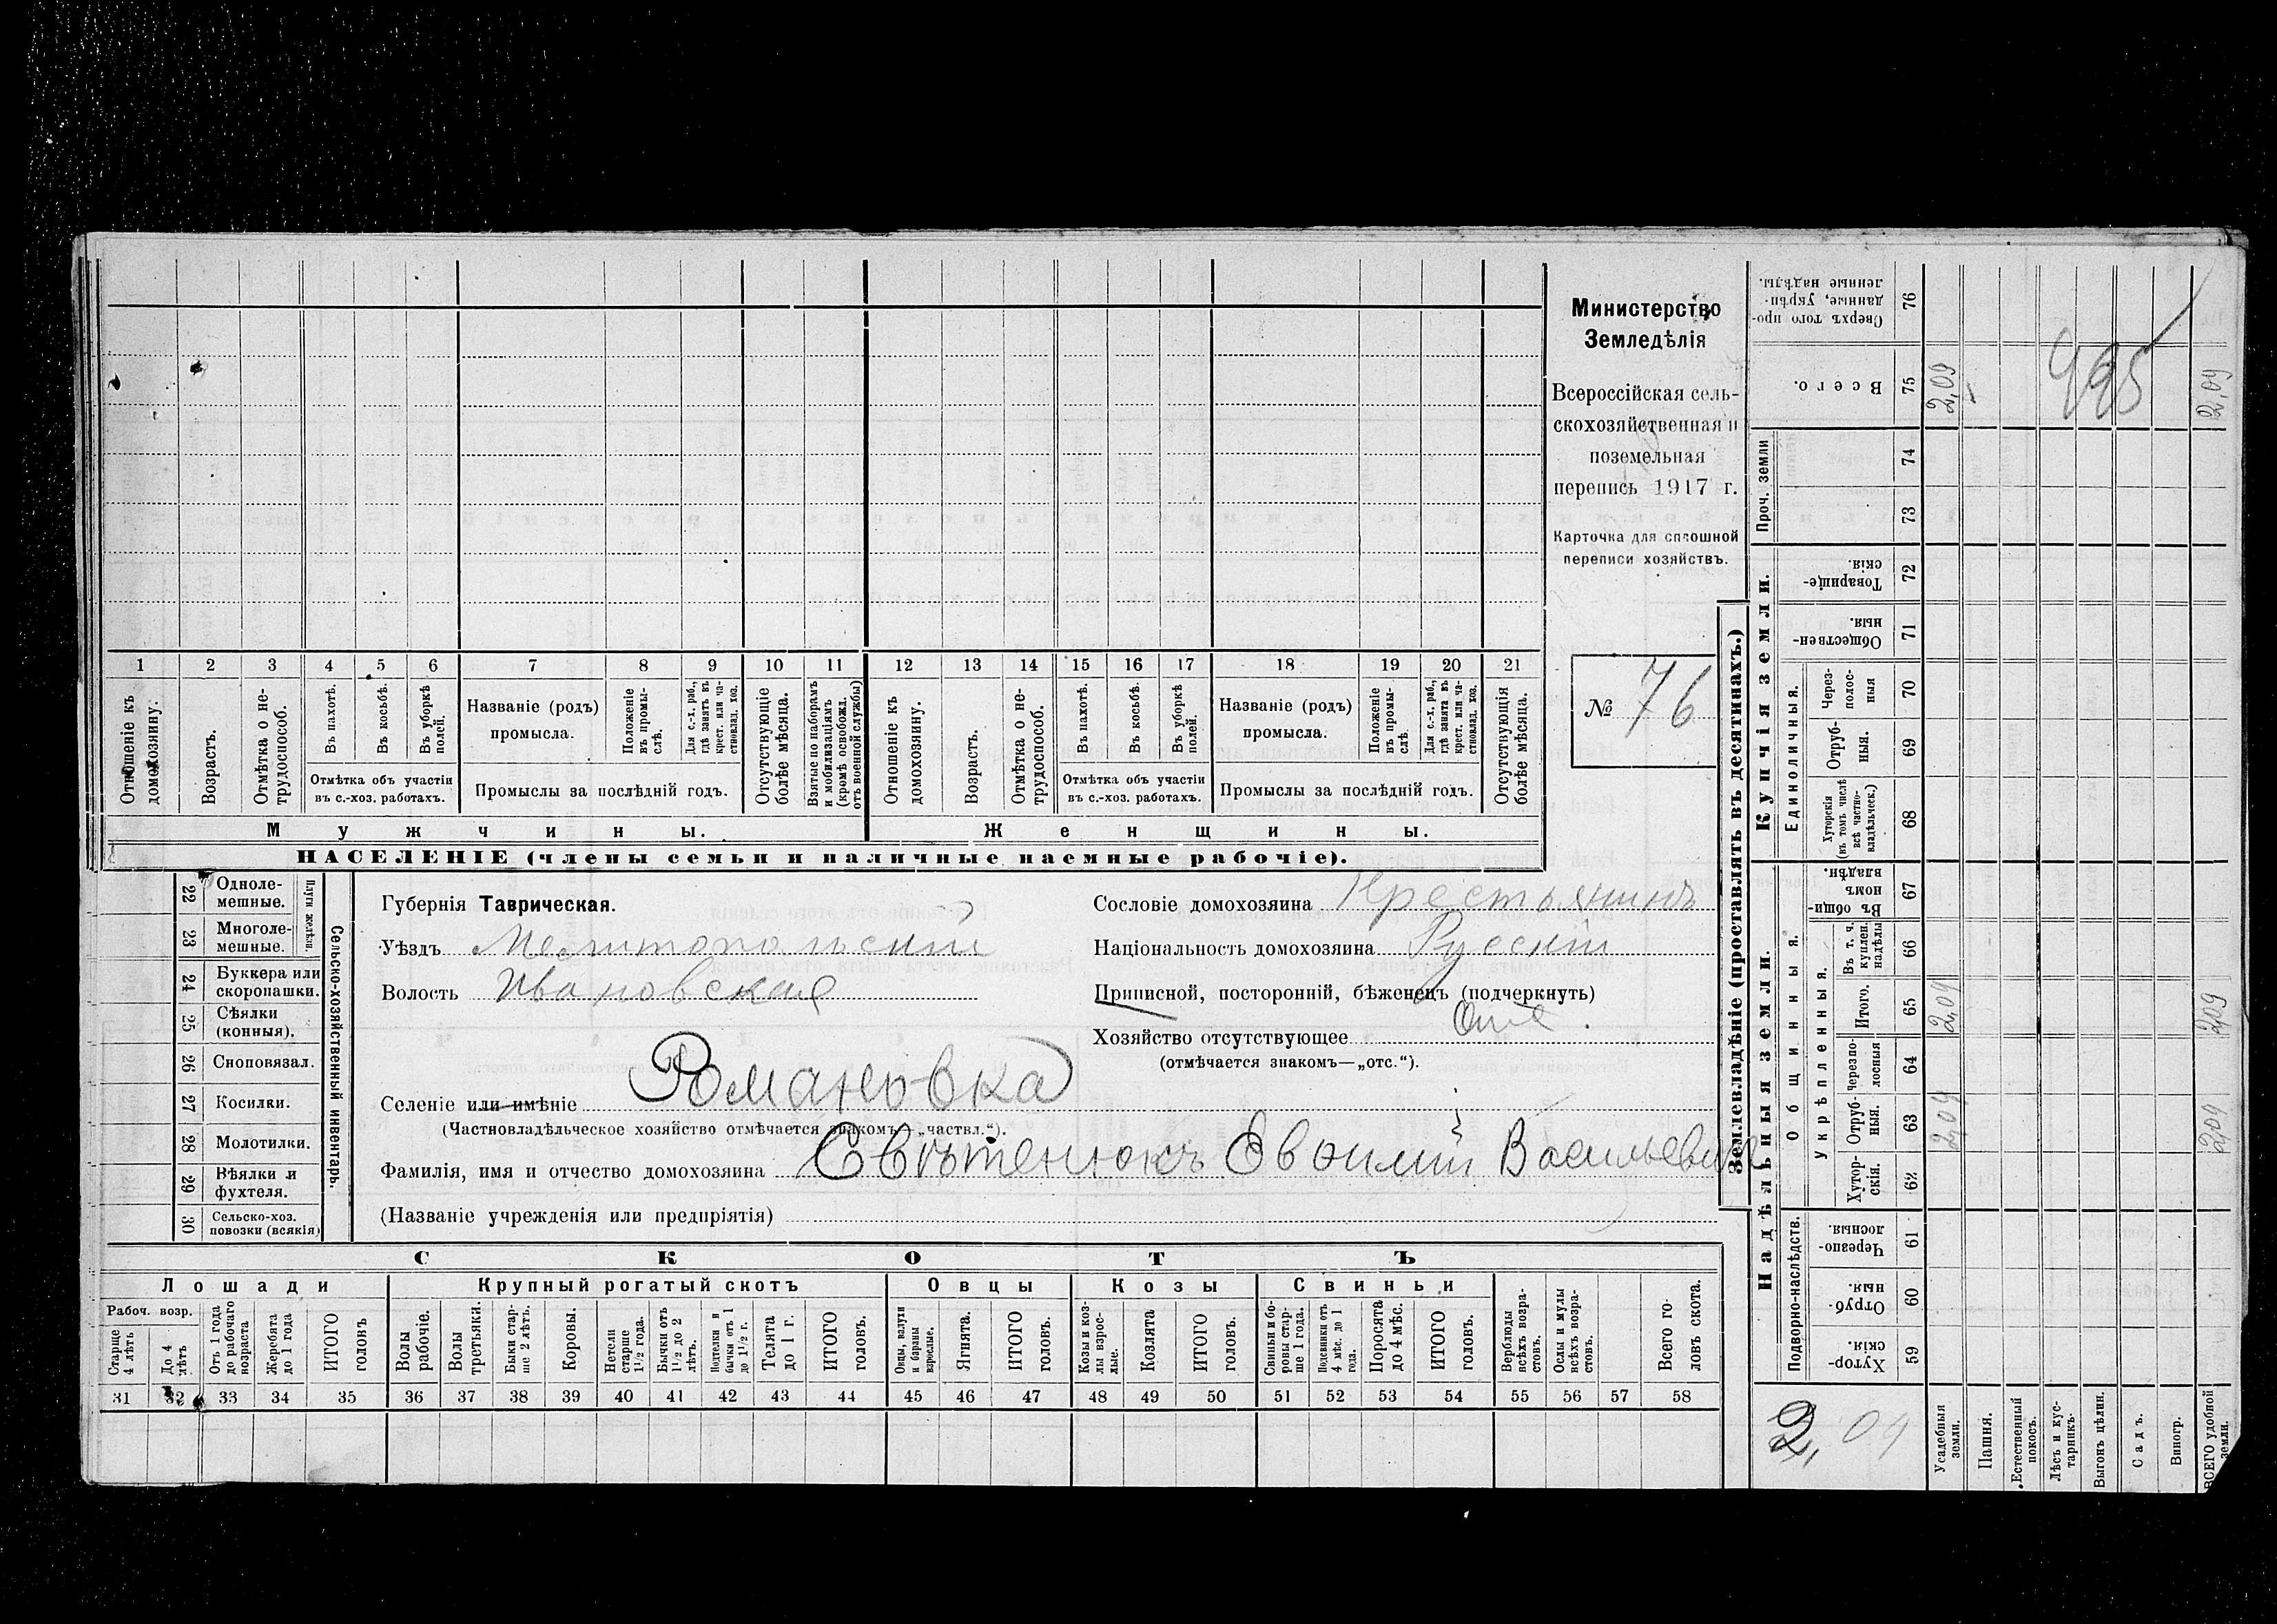 Министерство
Земледѣлія
Всероссійская сель-
скохозяйственная и
поземельная
перепись 1917 г.
Карточка для сплошной
переписи хозяйствъ.
№ 76
1 2 3 4 5 6 7 8 9 10 11 12 13 14 15 16 17 18 19 20 21
Отношеніе къ домохозяину.
Возрастъ.
Отмѣтка о не-трудоспособ.
Въ пахотѣ.
Въ косьбѣ.
Въ уборкѣ полей.
Отмѣтка объ участіи
въ с.-хоз. работахъ.
Названіе (родъ)
промысла.
Положеніе въ промы-слѣ.
Для с.-х. раб., гдѣ занятъ въ крест. или ча-стновлад. хоз.
Промыслы за послѣдній годъ.
Отсутствующіе болѣе мѣсяца.
Взятые по наборамъ и мобилизаціямъ (кромѣ освобожд. отъ военной службы)
Отношеніе къ домохозяину.
Возрастъ.
Отмѣтка о не-трудоспособ.
Въ пахотѣ.
Въ косьбѣ.
Въ уборкѣ полей.
Отмѣтка объ участіи
въ с.-хоз. работахъ.
Названіе (родъ)
промысла.
Положеніе въ промы-слѣ.
Для с.-х. раб., гдѣ занята въ крест. или ча-стновлад. хоз.
Промыслы за послѣдній годъ.
Отсутствующія болѣе мѣсяца.
Мужчины.
Женщины.
НАСЕЛЕНІЕ (члены семьи и наличные наемные рабочіе).
Сельско-хозяйственный инвентарь.
Плуги желѣзн.
22 Одноле-мешные.
23 Многоле-мешные.
24 Буккера или скоропашки.
25 Сѣялки (конныя).
26 Сноповязал.
27 Косилки.
28 Молотилки.
29 Вѣялки и фухтеля.
30 Сельско-хоз. повозки (всякія)
Губернія Таврическая.
Уѣздъ Мелитопольский
Волость Ивановская
Сословіе домохозяина Крестьянинъ
Національность домохозяина Русскій
Приписной, посторонній, бѣженецъ (подчеркнуть)
Хозяйство отсутствующее
(отмѣчается знакомъ—„отс.“).
Селеніе или имѣніе Романовка
(Частновладѣльческое хозяйство отмѣчается знакомъ—„частвл.“).
Фамилія, имя и отчество домохозяина
(Названіе учрежденія или предпріятія)
СКОТЪ
Лошади
Крупный рогатый скотъ
Овцы
Козы
Свиньи
Рабоч. возр.
Старше 4 лѣтъ
До 4 лѣтъ
Отъ 1 года до рабочаго возраста
Жеребята до 1 года
ИТОГО головъ
Волы рабочіе.
Волы третьяки.
Быки стар-ше 2 лѣтъ.
Коровы.
Нетели старше 1½ года.
Бычки отъ 1½ до 2 лѣтъ.
Подтелки и бычки отъ 1 до 1½ г.
Телята до 1 г.
ИТОГО головъ.
Овцы, валухи и бараны взрослые.
Ягнята.
ИТОГО головъ.
Козы и коз-лы взрос-лые.
Козлята
ИТОГО головъ.
Свиньи и бо-ровы стар-ше 1 года.
Подсвинки отъ 4 мѣс. до 1 года.
Поросята до 4 мѣс.
ИТОГО головъ.
Верблюды всѣхъ возра-стовъ.
Ослы и мулы всѣхъ возра-стовъ.
Всего го-ловъ скота.
31 32 33 34 35 36 37 38 39 40 41 42 43 44 45 46 47 48 49 50 51 52 53 54 55 56 57 58
Землевладѣніе (проставлять въ десятинахъ.)
Купчія земли.
Надѣльныя земли.
Сверхъ того про-данные, укрѣп-ленные надѣлы. 76
Всего. 75 2,09 2,09
995
Проч. земли 74
73
Товарище-скія. 72
Обществен-ныя 71
Единоличныя.
Через-полос-ныя 70
Отруб-ныя. 69
Хуторскія (въ томъ числѣ всѣ частно-владѣльческ.) 68
Общинныя.
Въ общи-номъ владѣн. 67
Укрѣпленныя.
Въ т. ч. куплен. надѣлы 66
Итого. 65 2,09 2,09
Черезпо-лосныя 64
Отруб-ныя. 63 2,09 2,09
Хутор-скія. 62
Подворно-наслѣдств.
Черезпо-лосныя 61
Отруб-ныя. 60
Хутор-скія. 59
2,09
Усадебныя земли.
Пашня.
Естественный покосъ.
Лѣсъ и кус-тарникъ.
Выгонъ цѣлин.
Садъ.
Виногр.
ВСЕГО удобной земли.